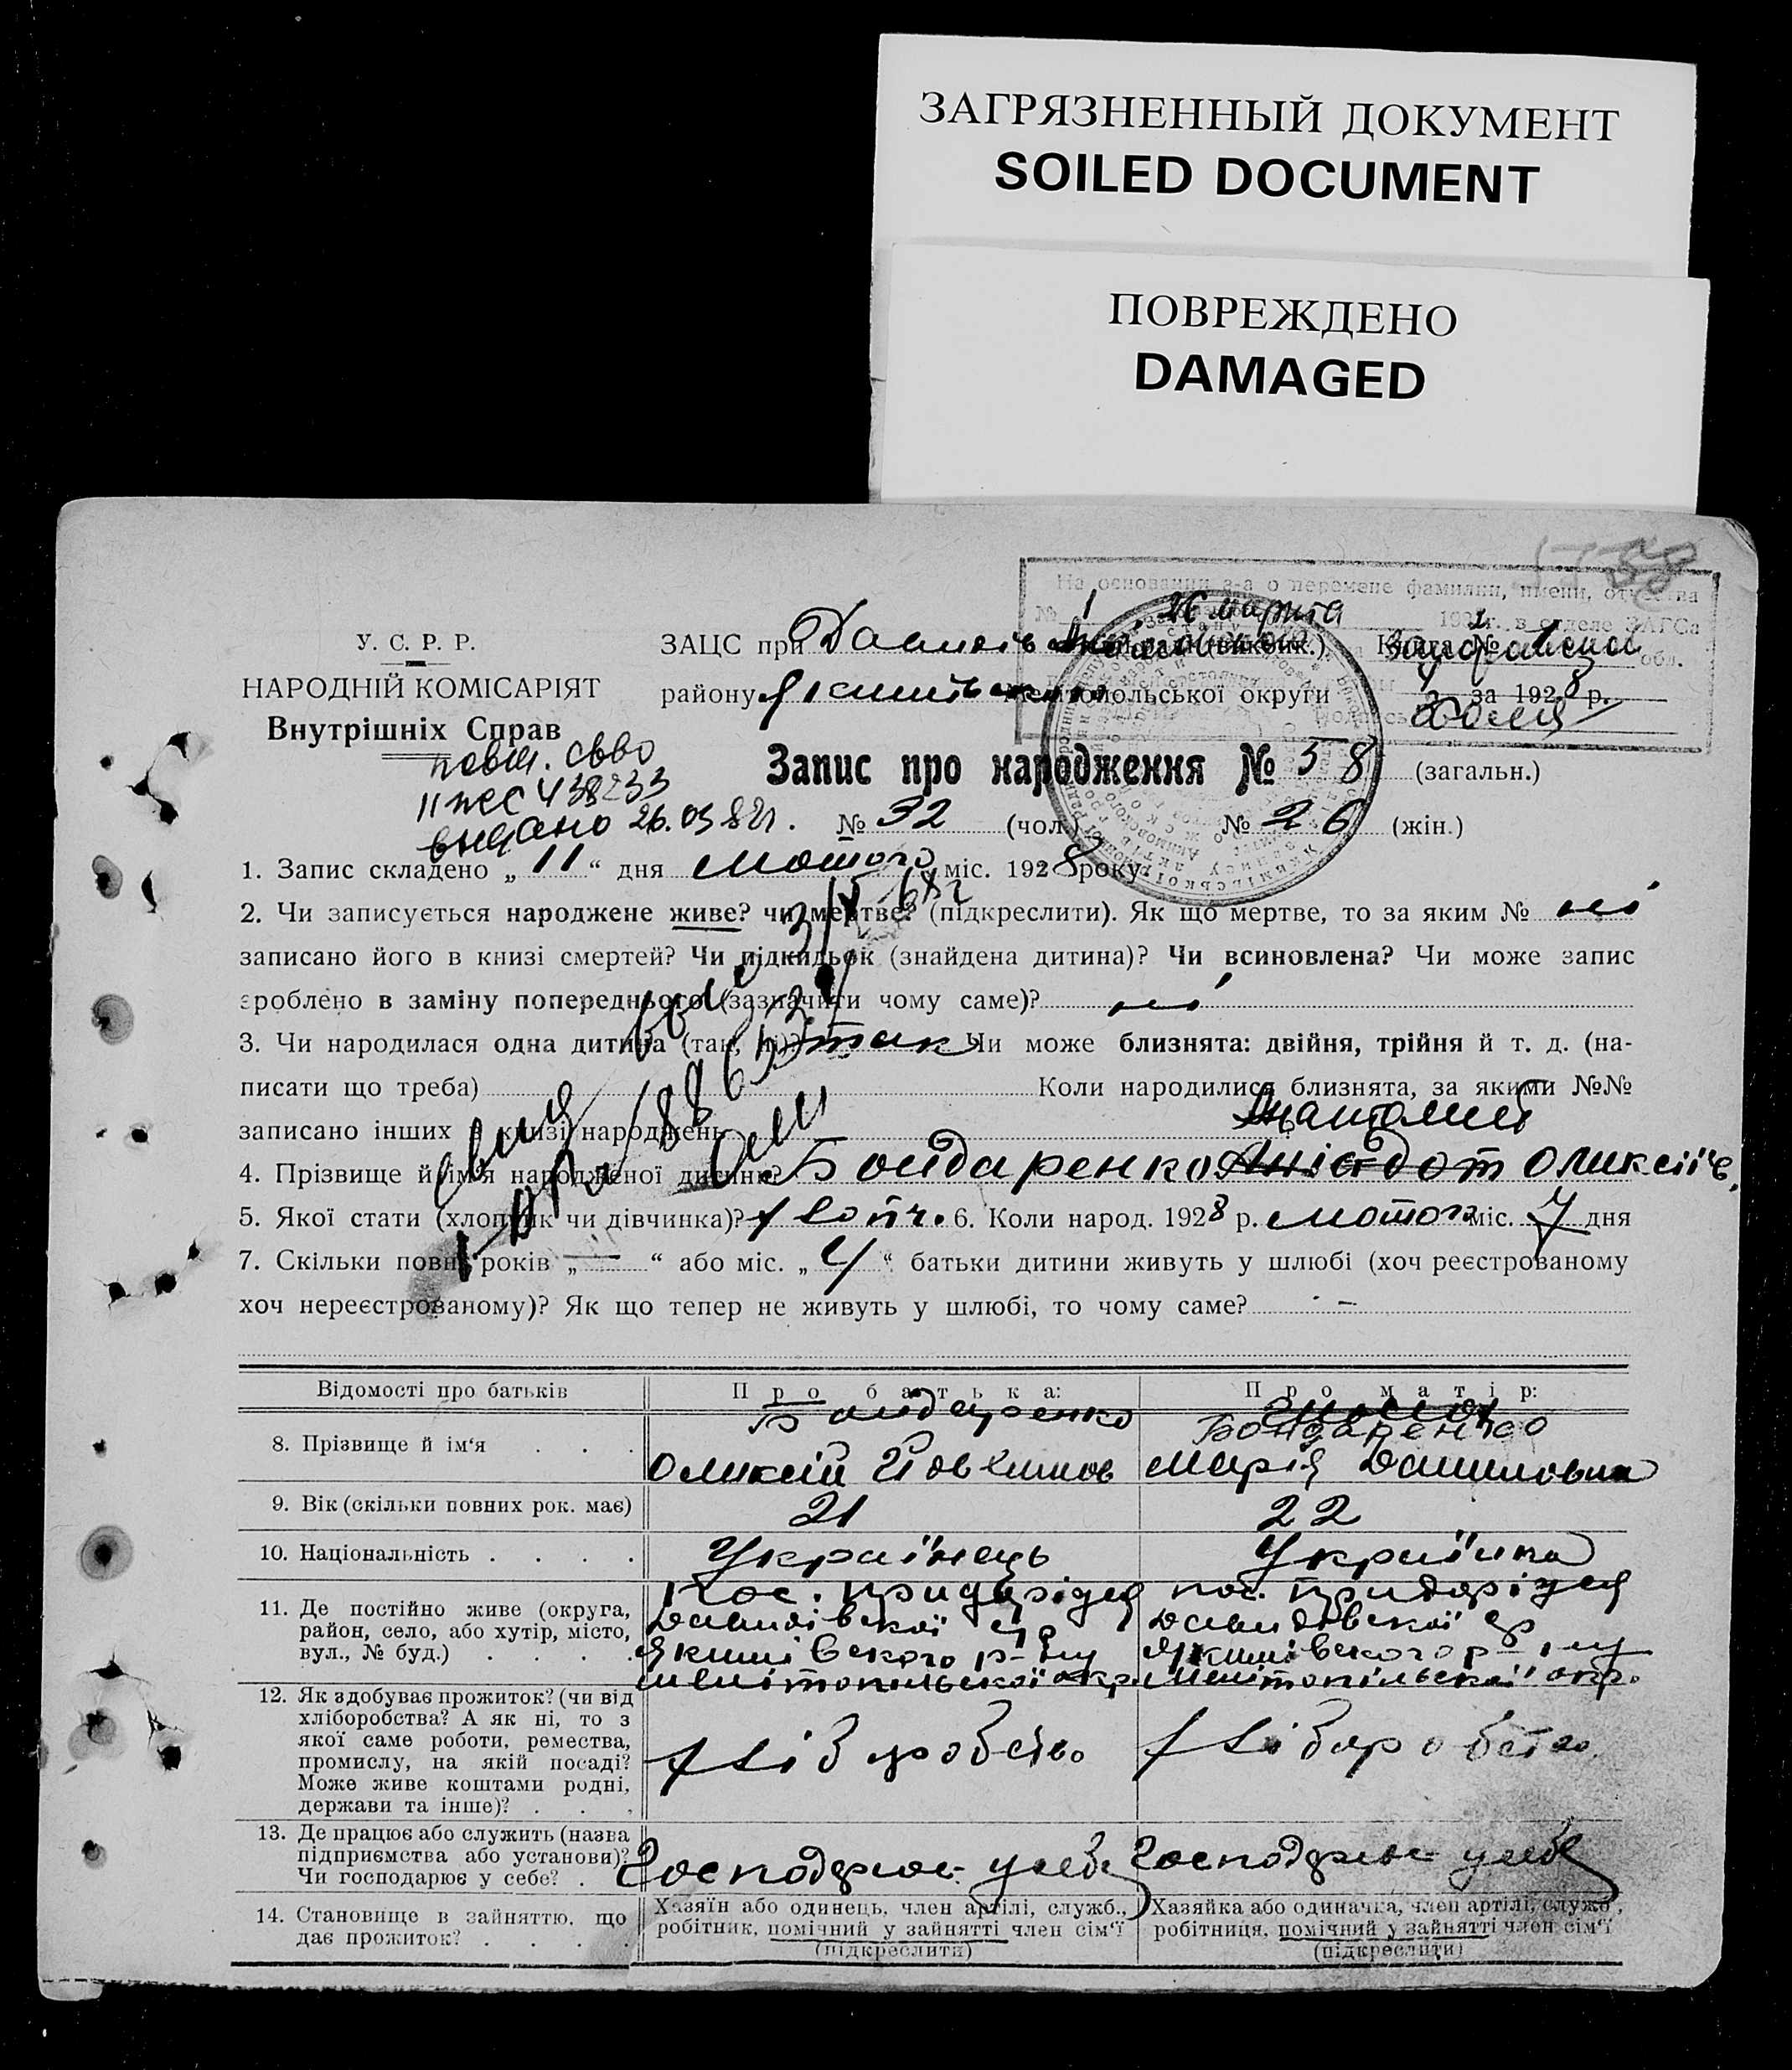 ЗАГРЯЗНЕННЫЙ ДОКУМЕНТ
SOILED DOCUMENT
ПОВРЕЖДЕНО
DAMAGED
На основании з-а о перемене фамилии, имени, отчества
№ 1 26 марта 1982 г. в отделе ЗАГСа
обл.
У. С. Р. Р.
НАРОДНІЙ КОМІСАРІЯТ
Внутрішніх Справ
ЗАЦС при (викон.) Книга №
району Мелітопольської округи за 1928 р.
повт. св-во
II ЖС 438233
выдано 26.03.82г.
Запис про народження № 58 (загальн.)
№ 32 (чол.) № 26 (жін.)
1. Запис складено „ 11 “ дня лютого міс. 1928 року
2. Чи записується народжене живе? чи мертве? (підкреслити). Як що мертве, то за яким № ні
записано його в книзі смертей? Чи підкидьок (знайдена дитина)? Чи всиновлена? Чи може запис
зроблено в заміну попереднього (зазначити чому саме)? ні
3. Чи народилася одна дитина (так, ні)? так Чи може близнята: двійня, трійня й т. д. (на-
писати що треба) Коли народилися близнята, за якими №№
записано інших в книзі народжень
Анатолий
4. Прізвище й ім'я народженої дитини? Бондаренко Олексіїв
5. Якої стати (хлопчик чи дівчинка)? хлопч. 6. Коли народ. 1928 р. лютого міс. 7 дня
7. Скільки повн. років „ — “ або міс. „ 4 “ батьки дитини живуть у шлюбі (хоч реєстрованому
хоч нереєстрованому)? Як що тепер не живуть у шлюбі, то чому саме? –
Відомості про батьків Про батька: Про матір:
8. Прізвище й ім'я . . . Бондаренко Бондаренко
Олексій Марія Даниловна
9. Вік (скільки повних рок. має) 21 22
10. Національність . . . . Українець Українка
11. Де постійно живе (округа,
район, село, або хутір, місто,
вул., № буд.) . . . .
Давидівської с/р Давидівської с/р
Якимівского р-ну Якимівского р-ну
Мелітопільської окр. Мелітопільської окр.
12. Як здобуває прожиток? (чи від
хліборобства? А як ні, то з
якої саме роботи, ремества,
промислу, на якій посаді?
Може живе коштами родні,
держави та інше)? . . .
хліборобство хліборобство
13. Де працює або служить (назва
підприємства або установи)?
Чи господарює у себе? .
Господарює у себе Господарює у себе
14. Становище в зайняттю, що
дає прожиток? . . . .
Хазяїн або одинець, член артілі, служб., робітник, помічний у зайнятті член сім'ї (підкреслити)
Хазяйка або одиначка, член артілі, служб., робітниця, помічний у зайнятті член сім'ї (підкреслити)